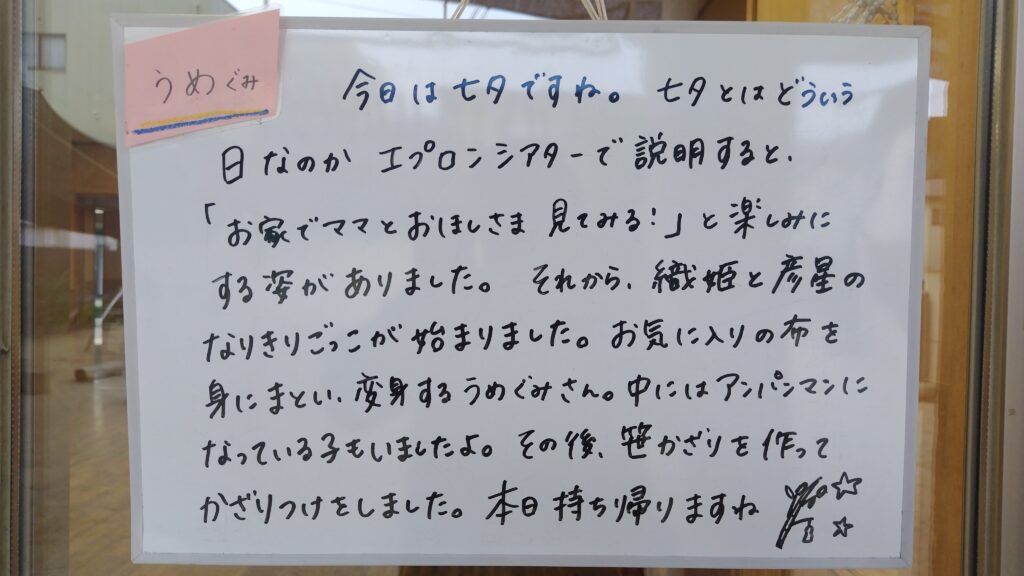 うめぐみ
今日は七夕ですね。 七夕とはどういう
日なのか エプロンシアターで説明すると、
「お家でママとおほしさま 見てみる!」と楽しみに
する姿がありました。 それから、織姫と彦星の
なりきりごっこが始まりました。お気に入りの布を
身にまとい、変身するうめぐみさん。中にはアンパンマンに
なっている子もいましたよ。その後、笹かざりを作って
かざりつけをしました。本日持ち帰りますね